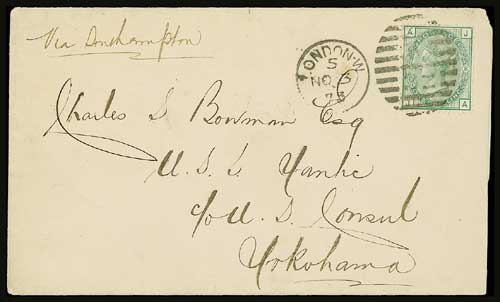 Via Southampton
LONDON-W
5
NO 5
73
A J
J A
Charles S Bowman Esq
U. S. S. Yantic
c/o U. S. Consul
Yokohama